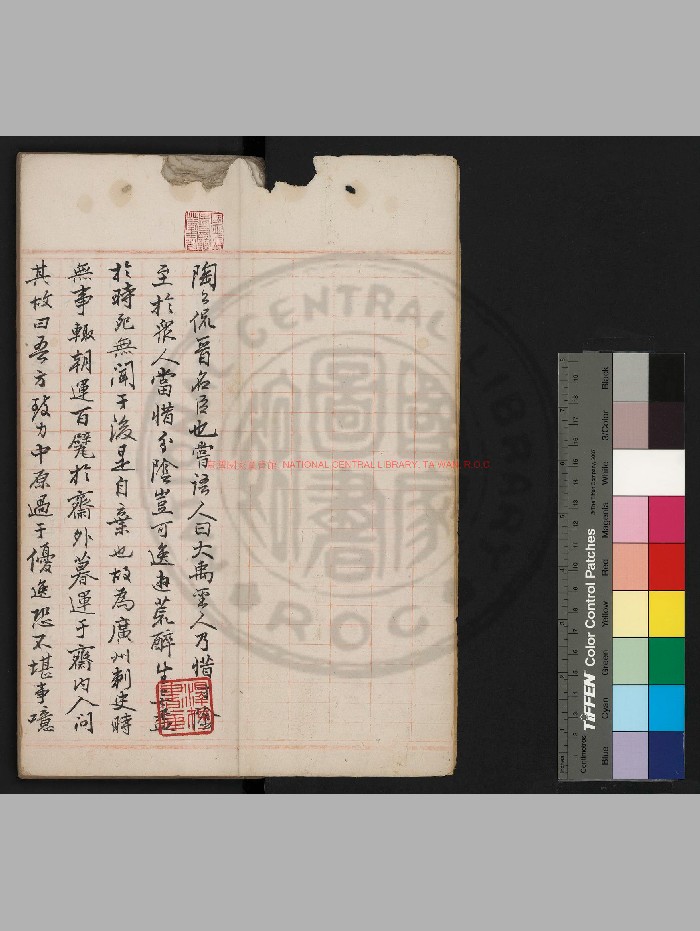 陶公侃晉名臣也嘗語人曰大禹聖人乃惜寸陰
至於衆人當惜分陰豈可逸遊荒醉生無益
於時死無聞于後是自棄也故為廣州刺史時
無事輒朝運百甓於齋外暮運于齋內人問
其故曰吾方致力中原過于優逸恐不堪事噫
NATIONAL CENTRAL LIBRARY, TAIWAN R.O.C
CENTRAL LIBRARY
R.O.C
TIFFEN Color Control Patches
Centimetres
Blue
Cyan
Green
Yellow
Red
Magenta
White
3/Color
Black